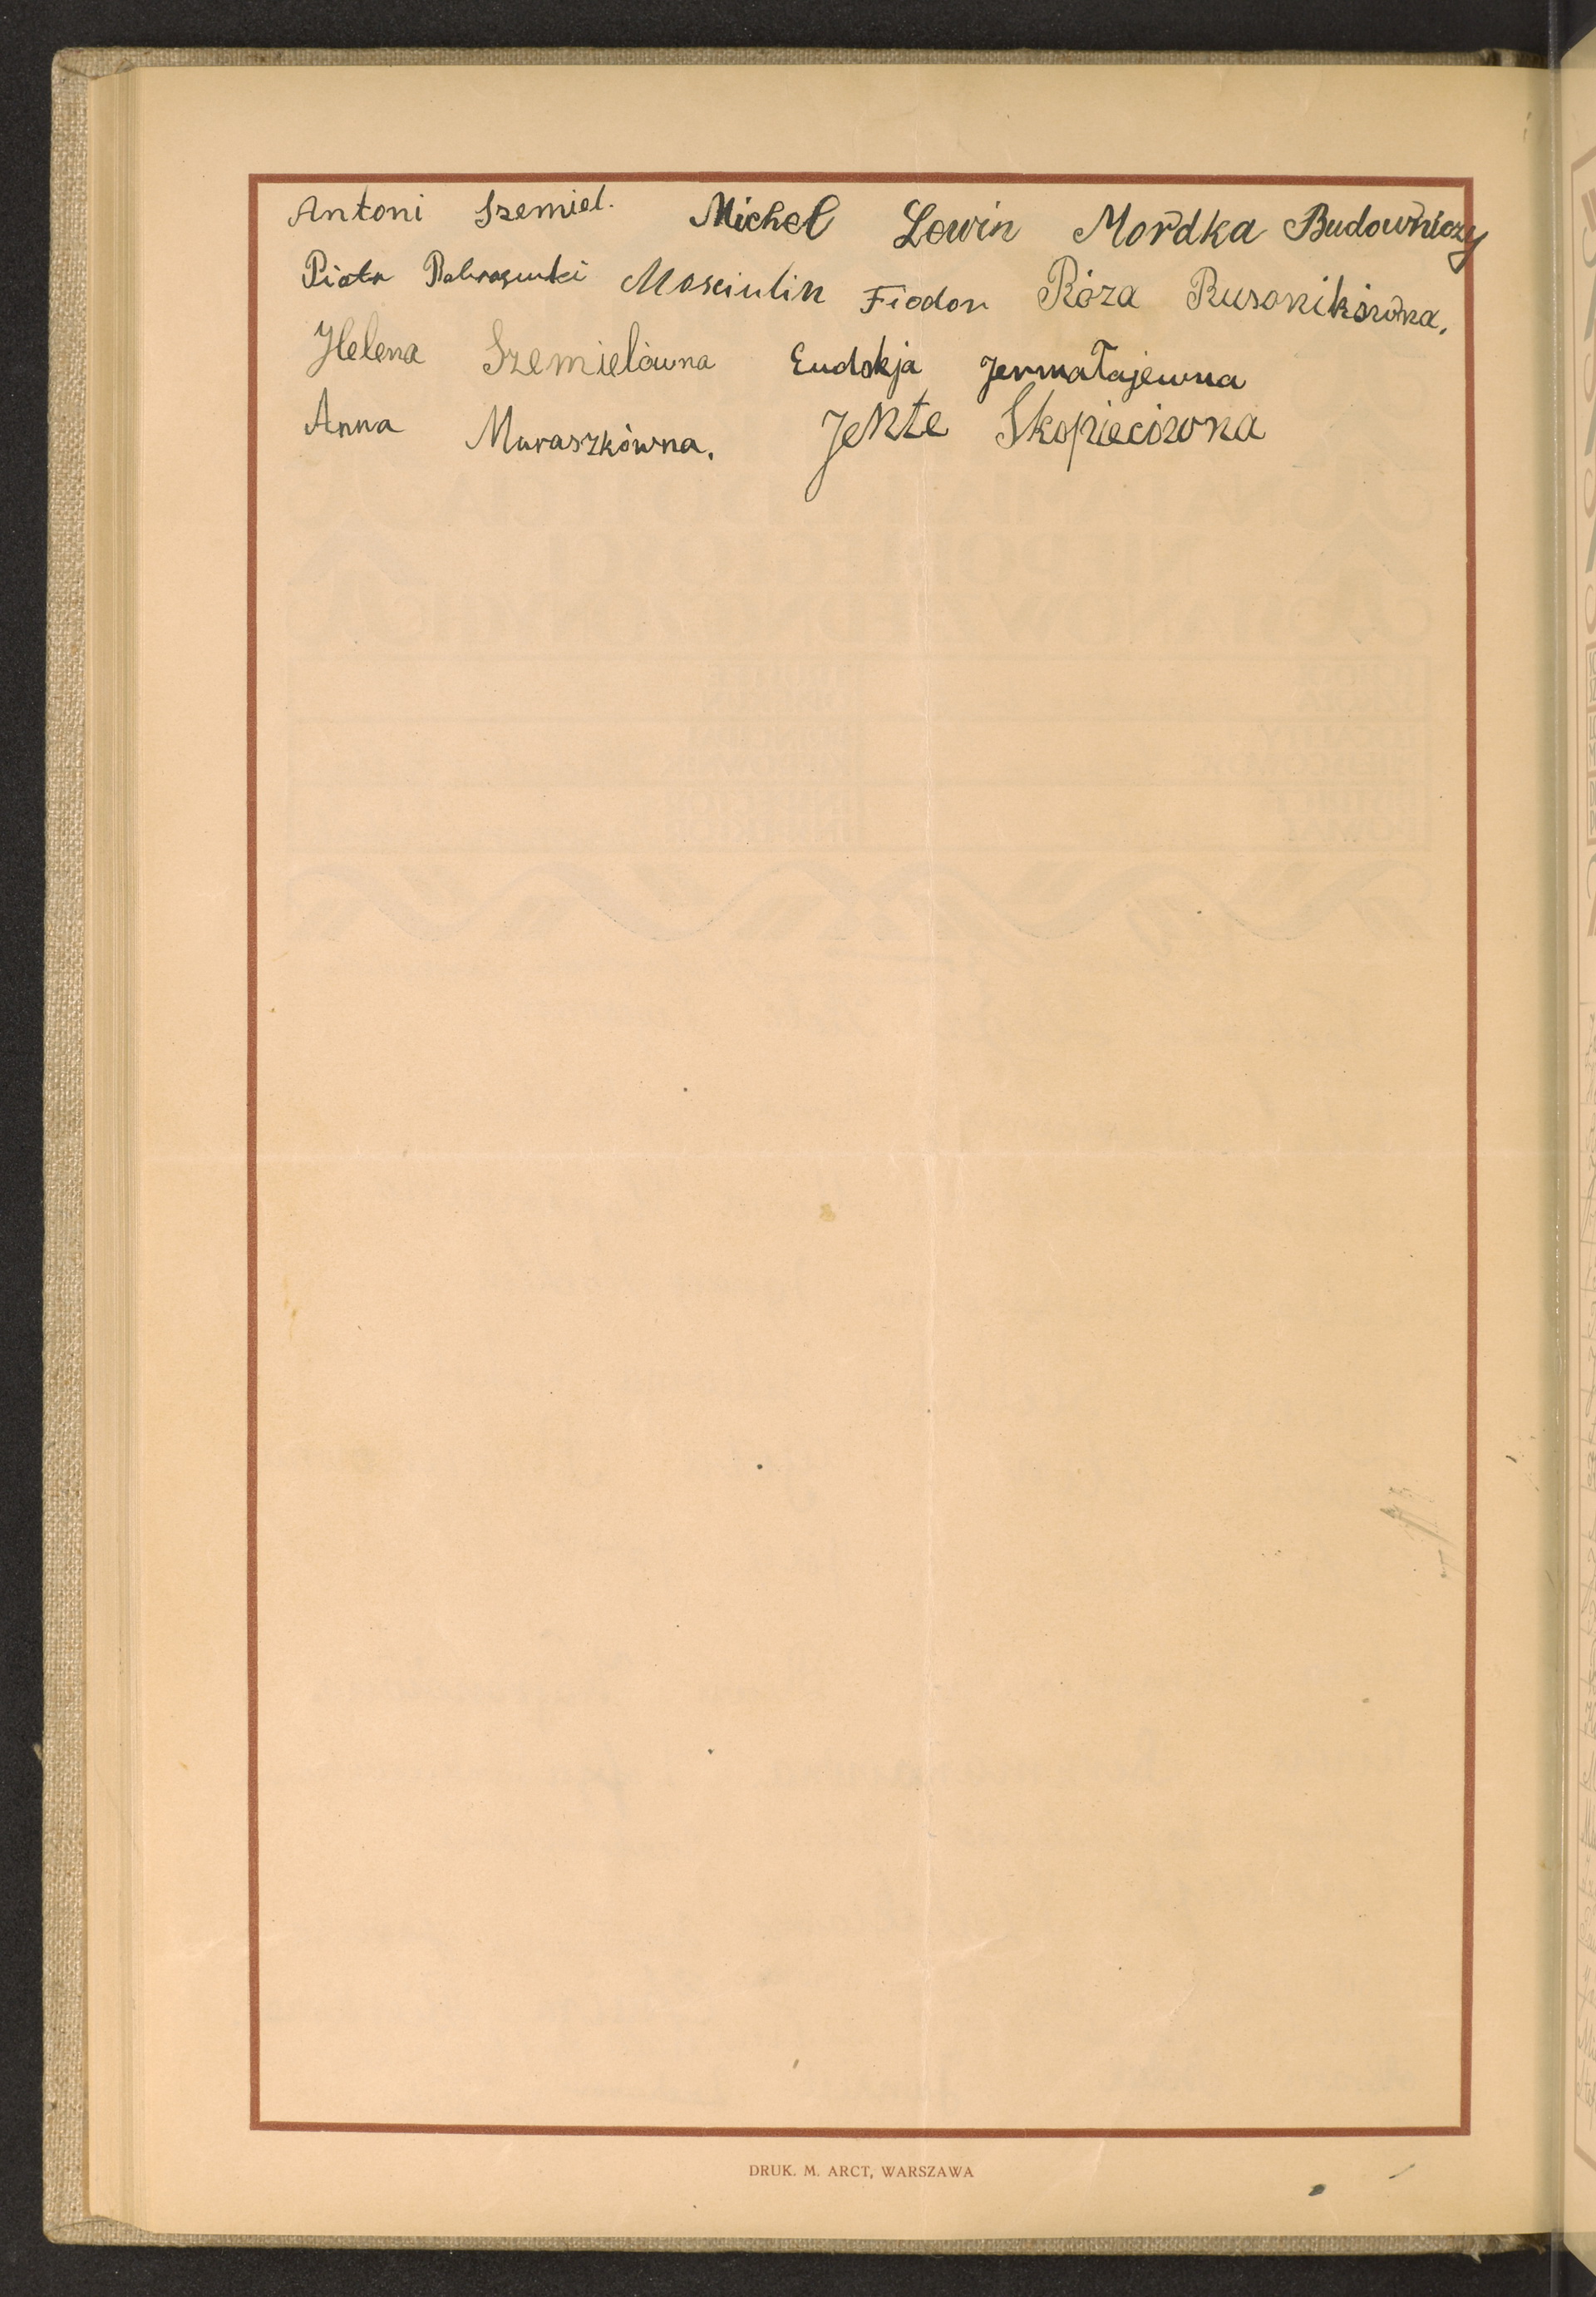 Antoni Szemiel. Michel Lewin Mordka Budowniczy
Piotr Mosciulin Fiodor Róza Rusonikówna.
Helena Szemielówna Eudokja Jermołajewna
Anna Muraszkówna. Jente Skopiecówna
DRUK. M. ARCT, WARSZAWA